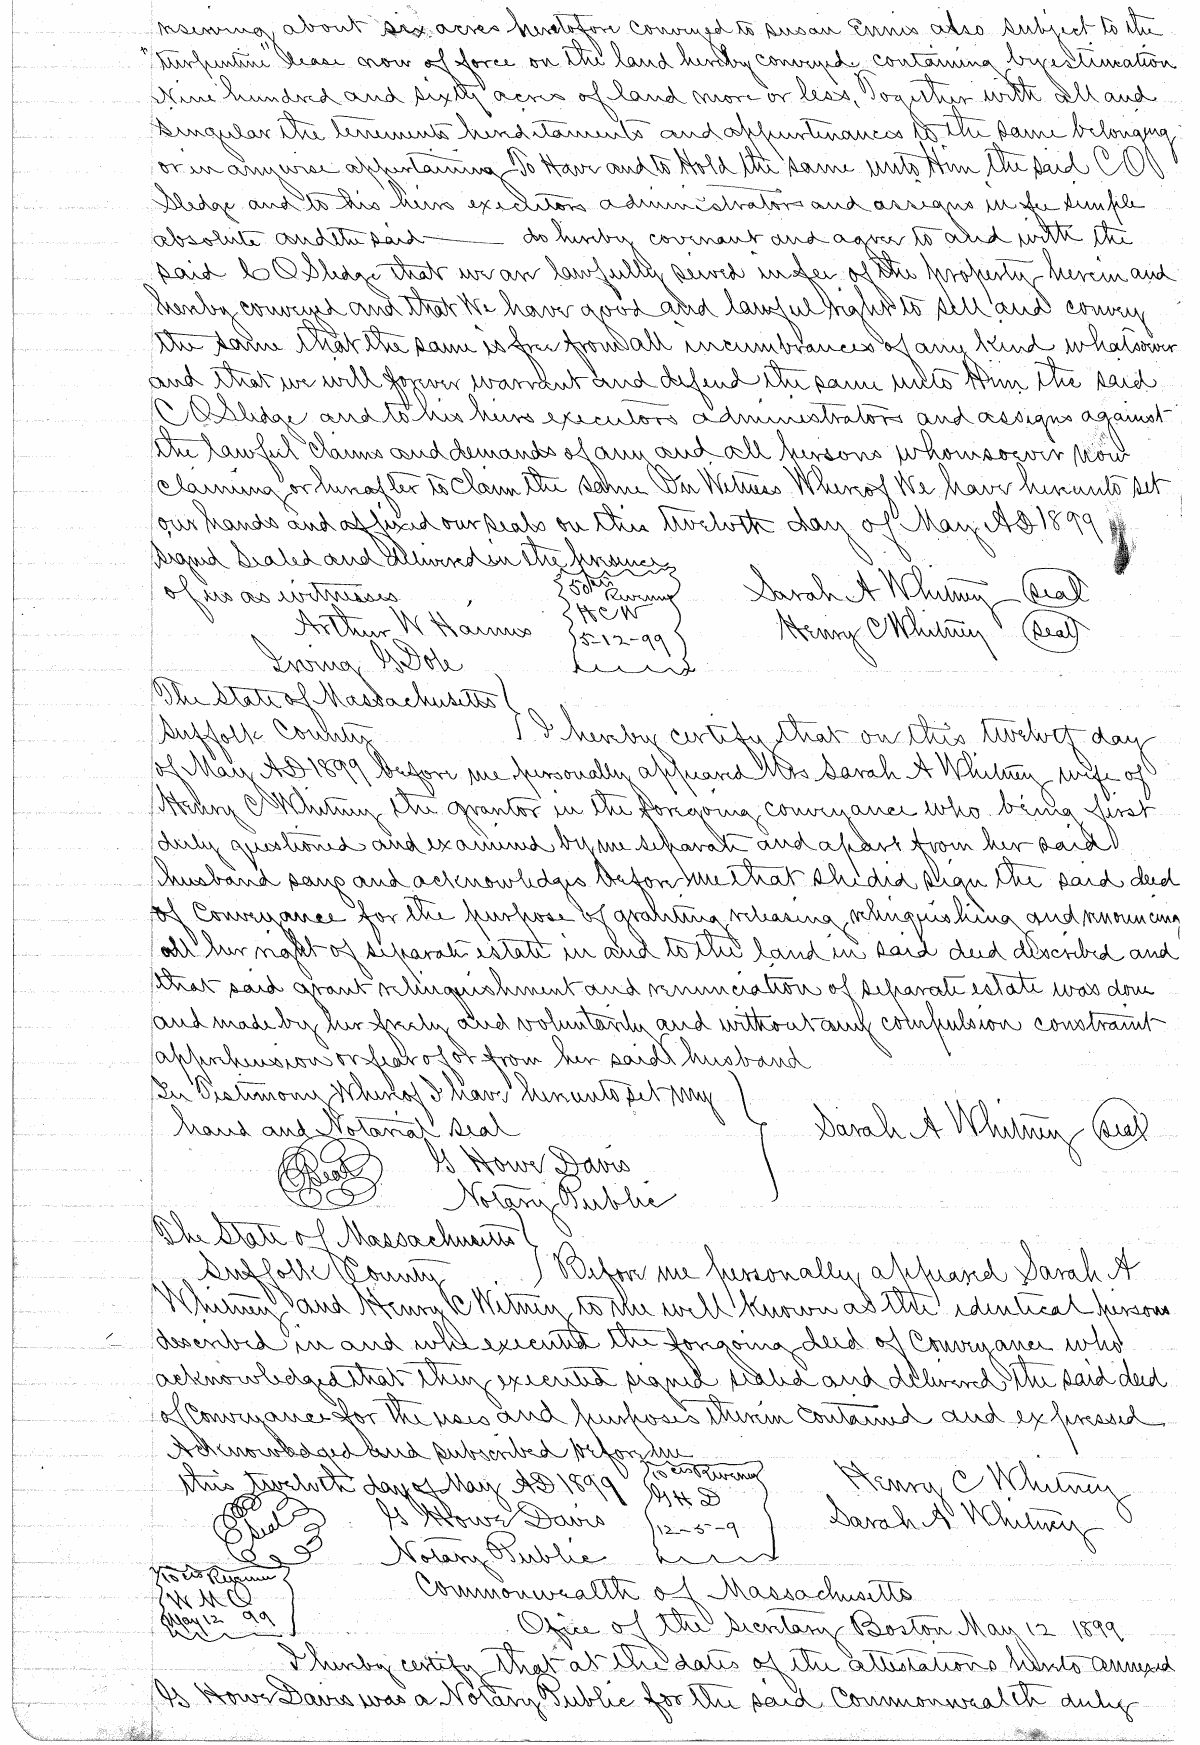 reserving about six acres heretofore conveyed to Susan Ennis also subject to the
"turpentine" lease now of force on the land hereby conveyed containing by estimation
Nine hundred and sixty acres of land more or less, Together with all and
singular the tenements hereditaments and appurtenances to the same belonging
or in anywise appertaining To Have and to Hold the same unto Him the said C O
Sledge and to his heirs executors administrators and assigns in fee simple
absolute and the said ——— do hereby covenant and agree to and with the
said C O Sledge that we are lawfully seized in fee of the property herein and
hereby conveyed and that We have good and lawful right to sell and convey
the same that the same is free from all incumbrances of any kind whatsoever
and that we will forever warrant and defend the same unto Him the said
C O Sledge and to his heirs executors administrators and assigns against
the lawful claims and demands of any and all persons whomsoever now
claiming or hereafter to claim the same In Witness Whereof We have hereunto set
our hands and affixed our seals on this twelvth day of May AD 1899
signed sealed and delivered in the presence
of us as witnesses
50 cts Revenue
HCW
5-12-99
Sarah A Whitney seal
Arthur W
Henry C Whitney seal
Irving G Dole
The State of Massachusetts
Suffolk County I hereby certify that on this day
of May AD 1899 before me personally appeared Mrs Sarah A Whitney wife of
Henry C Whitney the grantor in the foregoing conveyance who being first
duly questioned and examined by me separate and apart from her said
husband says and acknowledges before me that she did sign the said deed
of Conveyance for the purpose of granting releasing relinquishing and renouncing
all her right of separate estate in and to the land in said deed described and
that said grant relinquishment and renunciation of separate estate was done
and made by her freely and voluntarily and without any compulsion constraint
apprehension or fear of or from her said husband
In Testimony Whereof I have hereunto set my
hand and Notarial seal
Sarah A Whitney seal
Seal G Howe Davis
Notary Public
The State of Massachusetts
Suffolk County Before me personally appeared Sarah A
Whitney and Henry C Witney to me well known as the identical persons
described in and who executed the foregoing deed of Conveyance who
acknowledged that they executed signed sealed and delivered the said deed
of Conveyance for the uses and purposes therein contained and expressed
Acknowledged and subscribed before me
this twelvth day of May AD 1899
10 cts Revenue
GHD
12-5-9
Henry C Whitney
Seal G Howe Davis
Sarah A Whitney
Notary Public
10 cts Revenue
May 12 99
Commonwealth of Massachusetts
Office of the Secretary Boston May 12 1899
I hereby certify that at the dates of the attestations hereto annexed
G Howe Davis was a Notary Public for the said Commonwealth duly